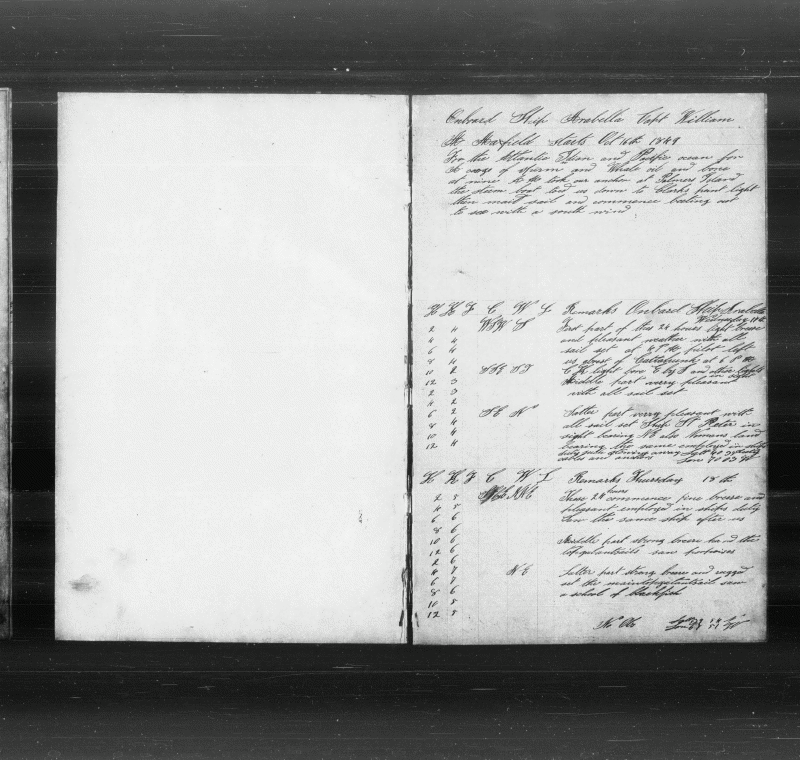 Onboard Ship Arabella Capt William
H. Maxfield starts Oct 16th 1849
For the Atlantic Indian and Pacific ocean for
a cargo of sperm and Whale oil and bone
at nine took our anchor at Palmers Island
the steam boat towd us down to Clarks point light
then maid sail and commence beating out
to sea with a south wind
H K F C W L Remarks Onboard Ship Arabella
Wednesday 17th
2 4 WSW S First part of this 24 hours light breese
4 4 and pleasant weather with all
6 4 sail set at 4 PM pilot left
8 4 us abrest of Cuttahunk at 6 PM
10 2 light bore E by S and other lights in sight
12 3 Middle part verry pleasant
2 3 with all sail set
4 2
6 2 SE Latter part verry pleasant with
8 4 all sail set Ship St Peter in
10 4 sight bearing NE also Nomans land
12 4 bearing the same employed in ships
duty stowing away
cables and anchors
H K F C W L Remarks Thursday 18th
2 5 NNE These 24 hours commence fine breese and
4 5 pleasant employed in ships duty
6 6 saw the same ship after us
8 6
10 6 Middle part strong breese hand the
12 6 topgalantsails saw porpoises
2 6
4 7 NE Latter part strong breese and rugged
6 7 set the maintopgalantsail saw
8 6 a school of blackfish
10 8
12 8
No Ob